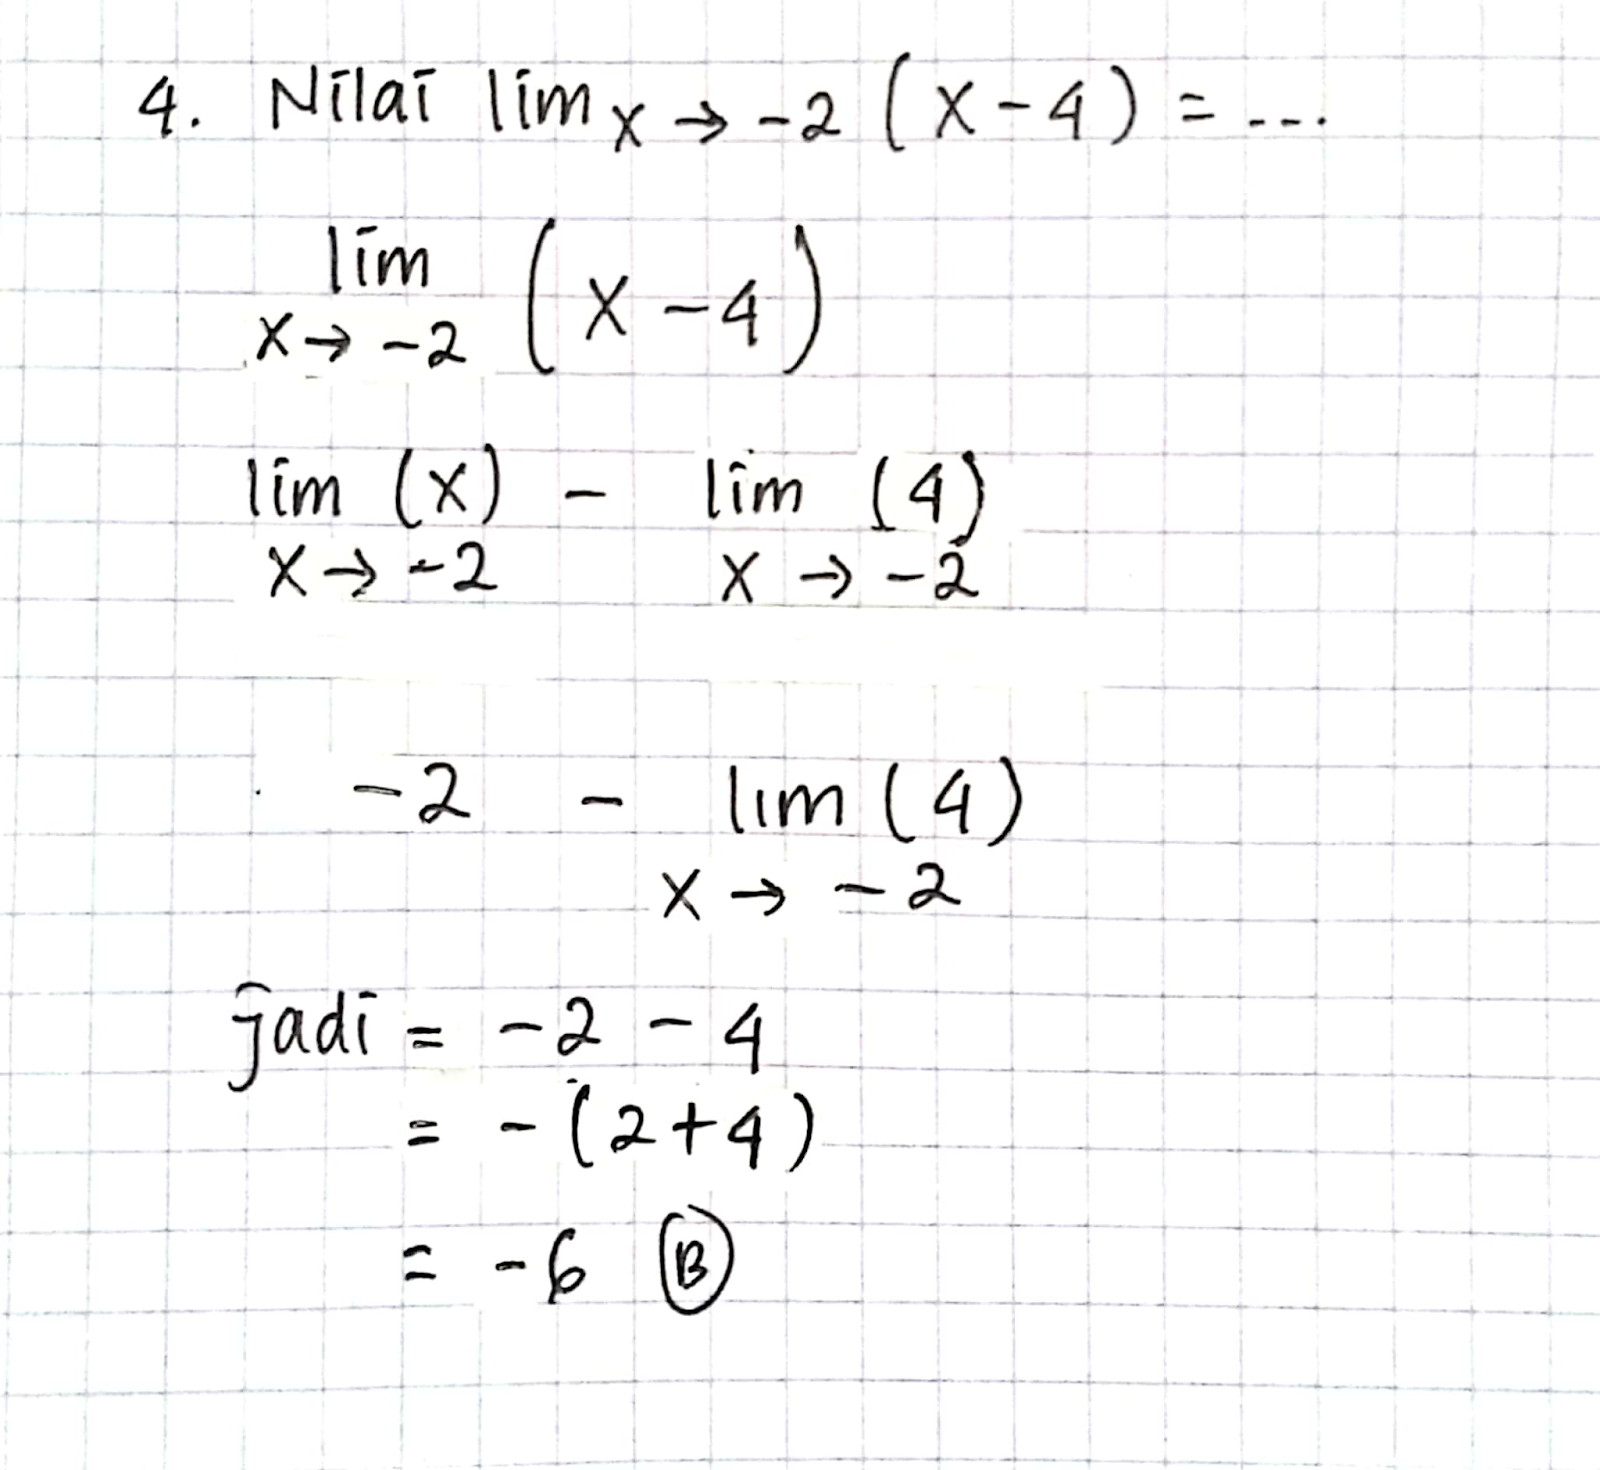 4. Nilai lim x → -2 (x - 4) = ...
lim
x → -2 (x - 4)
lim (x) - lim (4)
x → -2 x → -2
-2 - lim (4)
x → -2
jadi = -2 - 4
= - (2 + 4)
= -6 B